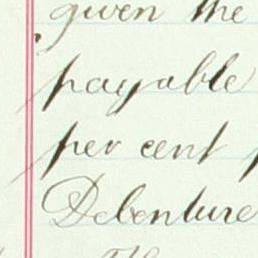 given the
payable
per cent
Debenture
The